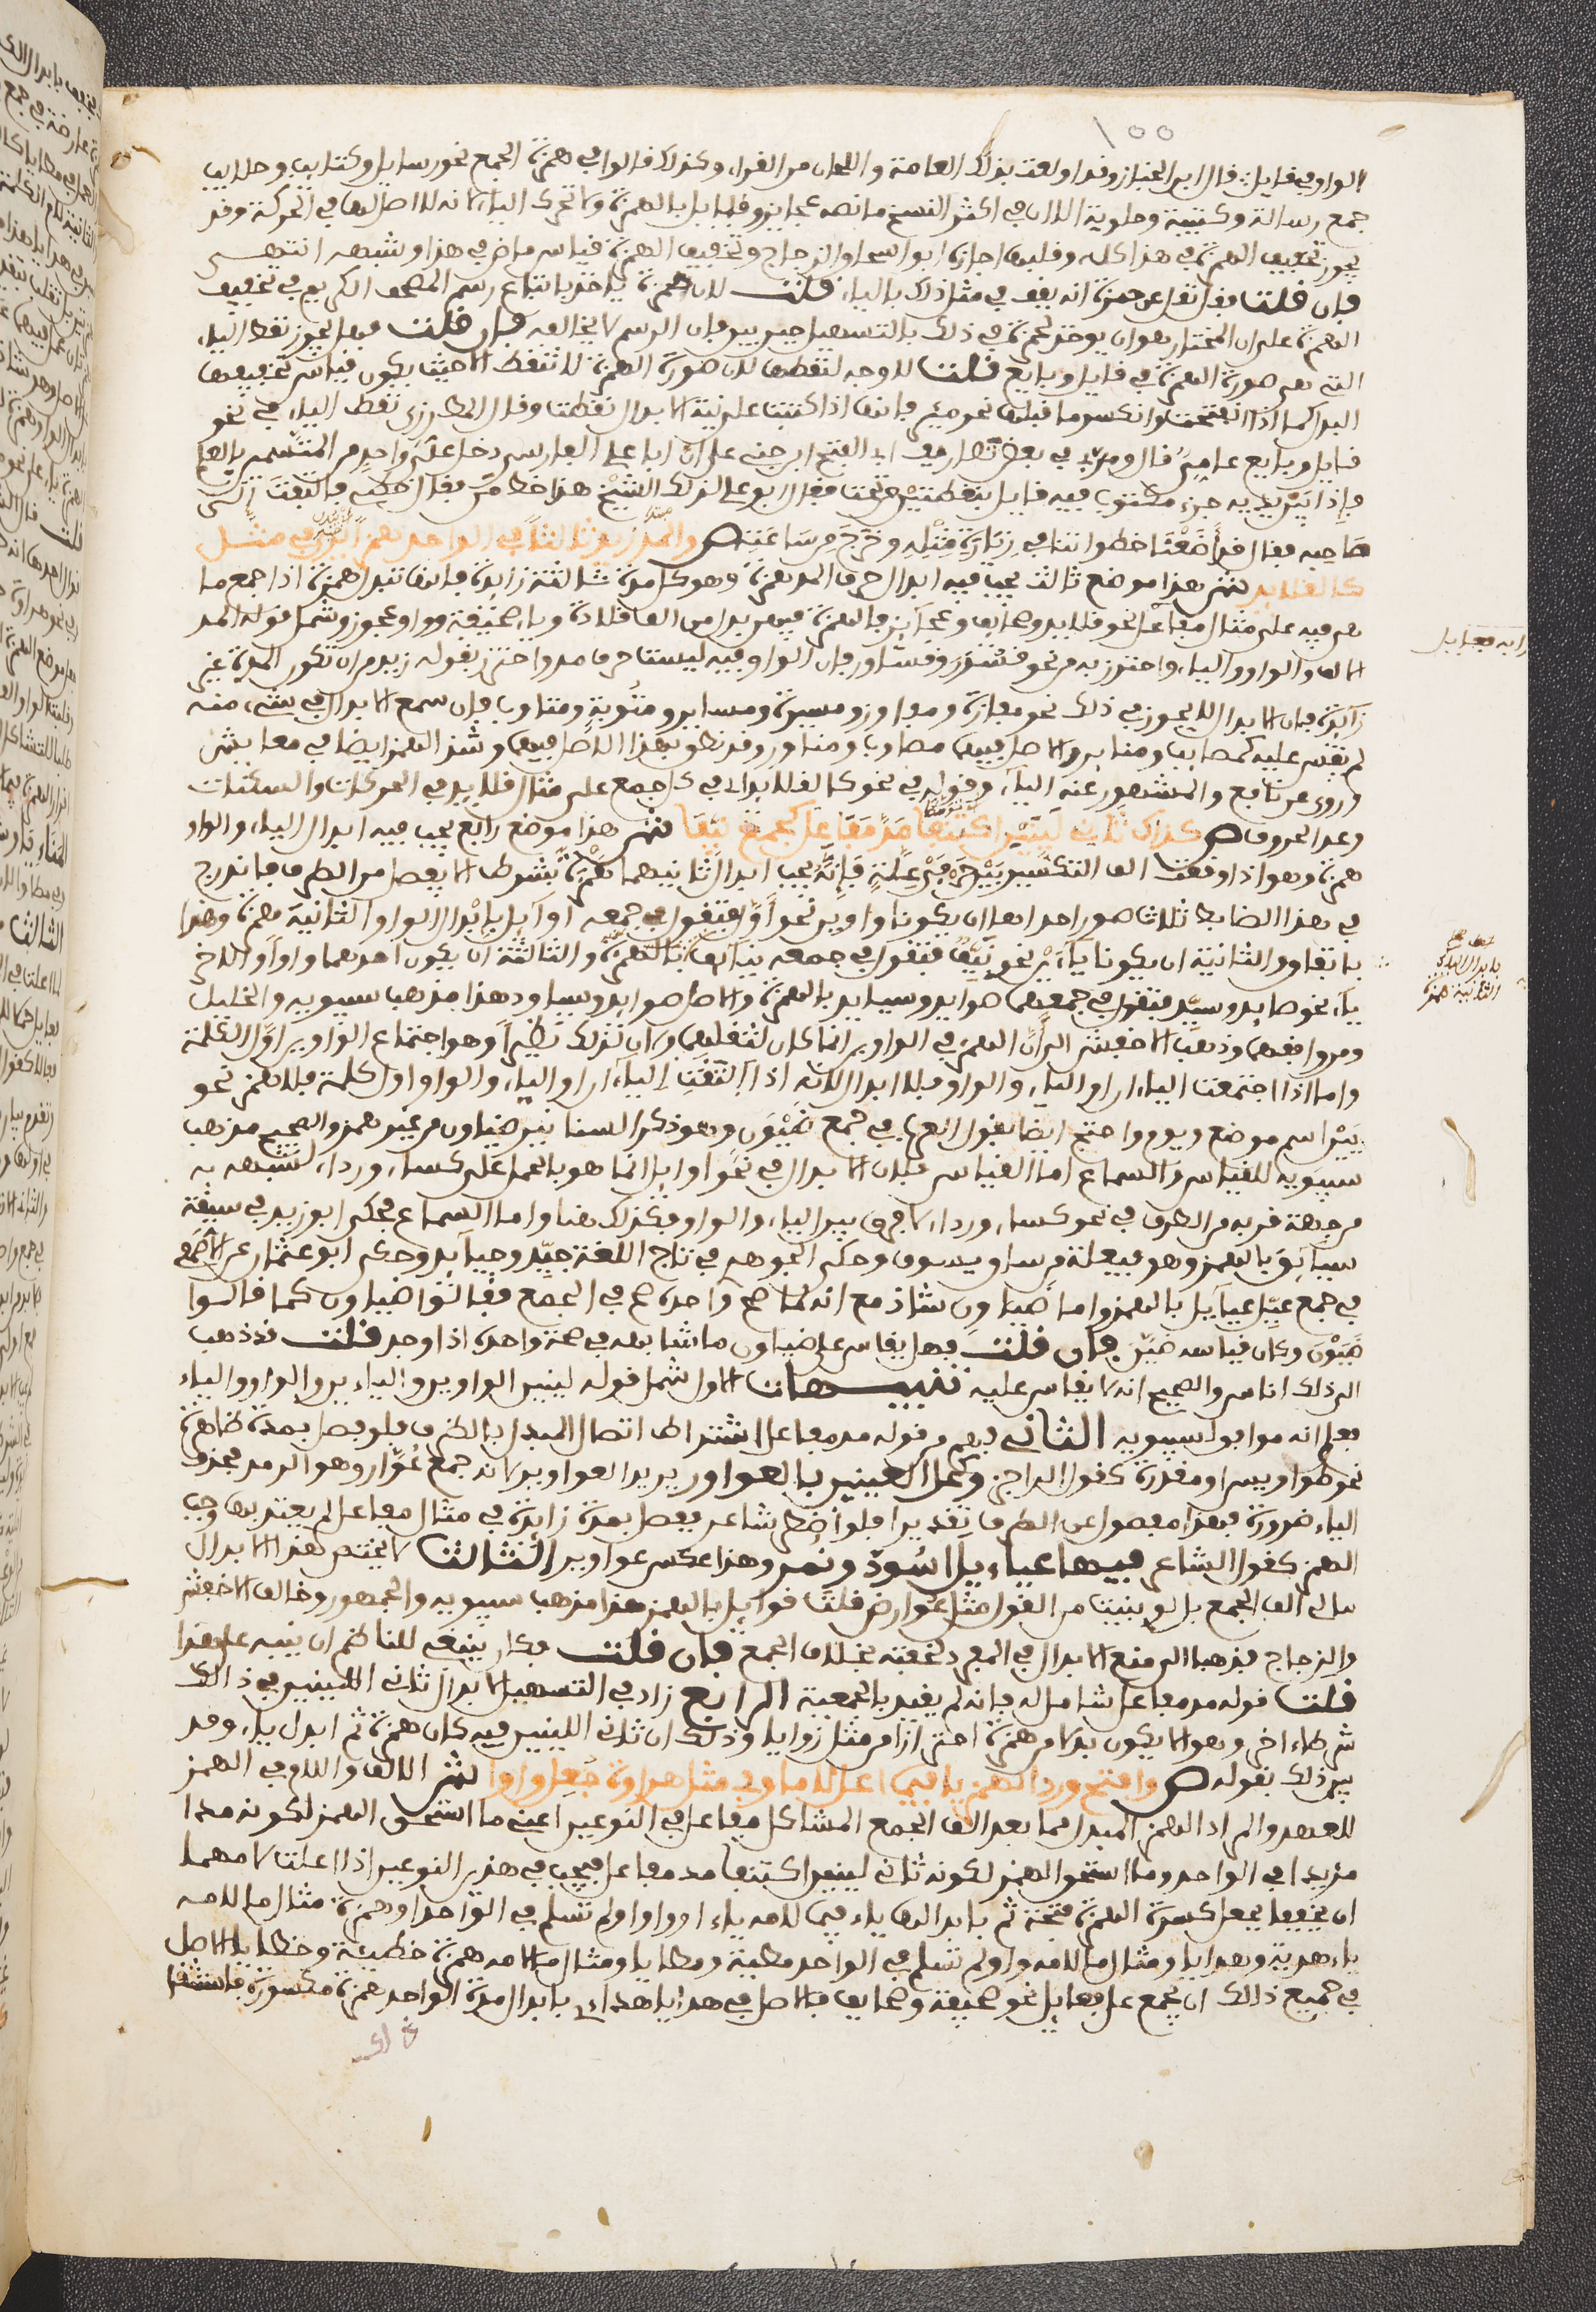 الواو في قايل قال ابن الخباز وقد اولعت بذلك العامة واللحان من القراء وكذلك قالوا في همزة الجمع نحو رسايل وكتايب وحلايب
جمع رسالة وكتيبة وحلوبة الا ان في اكثر النسخ ما نصه عجايز وقبايل بالهمزة ولا تحرك الياء لانه لا اصل لها في الحركة وقد
يجوز تخفيف الهمزة في هذا كله وقلبها اجازه ابو اسحاق الزجاج وتخفيف الهمزة قياس ماض في هذا وشبهه انتهى
فإن قلت فقد نقل عن حمزة انه يقف في مثل ذلك بالياء قلت لان حمزة ياخذ باتباع رسم المصحف الكريم في تخفيف
الهمزة على ان المختار هو ان يوخذ لحمزة في ذلك بالتسهيل بين بين فان الرسم لا يخالفه فإن قلت فهل يجوز نقط الياء
التي هي صورة الهمزة في قايل وبايع قلت لا وجه لنقطها لان صورة الهمزة لا تنقط الا حيث يكون قياس تخفيفها
البدل كما اذا انفتحت وانكسر ما قبلها نحو مير فانها اذا كتبت على نية الابدال نقطت وقال المطرزي نقط الياء في نحو
قايل وبايع عامي قال ومر بي في بعض تصانيف ابي الفتح ابن جني على ان ابا علي الفارسي دخل على واحد من المتسمين بالعلم
فإذا بين يديه جزء مكتوب فيه قايل بنقطتين من تحت فقال ابو علي لذلك الشيخ هذا خط من فقال خطي فالتفت الى
صاحبه فقال قد أضعنا خطواتنا في زيارة مثله وخرج من ساعته ص والمد زيد ثالثا في الواحد همزا يرى في مثل
كالقلايد ش هذا موضع ثالث يجب فيه ابدال حرف المد همزة وهو كل مدة ثالثة زايدة فانها تبدل همزة اذا جمع ما
هي فيه على مثال مفاعل نحو قلايد وصحايف وعجايز فالهمزة فيهن بدل من الف قلادة وياء صحيفة وواو عجوز وشمل قوله المد
الالف والواو والياء واحترز به من نحو قسور وقساور فان الواو فيه ليست حرف مد واحترز بقوله زيد من ان تكون المدة غير
زايدة فان الابدال لا يجوز في ذلك نحو مفازة ومفاوز ومسيرة ومساير ومثوبة ومثاوب فإن سمع الابدال في شيء منه
لم يقس عليه كمصايب ومناير والاصل فيهما مصاوب ومناور وقد نطق بهذا الاصل فيهما وشذ الهمز ايضا في معايش
وروي عن نافع والمشهور عنه الياء وقوله في نحو كالقلايد اي في كل جمع على مثال قلايد في الحركات والسكنات
وعدد الحروف ص كذاك ثاني لينين اكتنفا مد مفاعل كجمع نيفا ش هذا موضع رابع يجب فيه ابدال الياء والواو
همزة وهو اذا وقعت الف التكسير بين حرفي علة فإنه يجب ابدال ثانيهما همزة بشرط الا يفصل من الطرف فاندرج
في هذا الضابط ثلاث صور احداها ان يكونا واوين نحو أول فتقول في جمعه اوايل بإبدال الواو الثانية همزة وهذا
باتفاق والثانية ان يكونا ياءين نحو نيف فتقول في جمعه نيايف بالهمزة والثالثة ان يكون احدهما واوا والاخر
ياء نحو صايد وسيد فتقول في جمعهما صوايد وسيايد بالهمزة والاصل صوايد وسياود هذا مذهب سيبويه والخليل
ومن وافقهما وذهب الاخفش الى ان الهمز في الواوين انما كان لثقلهما ولان لذلك نظيرا وهو اجتماع الواوين اول الكلمة
واما اذا اجتمعت الياءان او الياء والواو فلا ابدال لانه اذا التقت الياءان او الياء والواو اول كلمة فلا همز نحو
يين اسم موضع ويوم واحتج ايضا بقول العرب في جمع ضيون وهو ذكر السنانير ضياون من غير همز والصحيح مذهب
سيبويه للقياس والسماع اما القياس فلان الابدال في نحو اوايل انما هو بالحمل على كساء ورداء لشبهه به
من جهة قربه من الطرف في نحو كساء ورداء لا فرق بين الياء والواو فكذلك هنا واما السماع فحكى ابو زيد في سيقة
سيايق بالهمز وهو فيعلة من ساق يسوق وحكى الجوهري في تاج اللغة جيد وجيايد وحكى ابو عثمان عن الاصمعي
في جمع عيل عيايل بالهمز واما ضياون شاذ مع انه لما صح واحده صح في الجمع فقالوا ضياون كما قالوا
ضيون وكان قياسه ضين فإن قلت فهل يقاس على ضياون ما شابهه في صحة واحده اذا وجد قلت قد ذهب
الى ذلك اناس والصحيح انه لا يقاس عليه تنبيهات الاول شمل قوله لينين الواوين والياءين والواو والياء
فعلم انه موافق لسيبويه الثاني فهم من قوله مد مفاعل اشتراط اتصال المبدل بالطرف فلو فصل بمدة ظاهرة
نحو طواويس او مقدرة كقول الراجز وكحل العينين بالعواور يريد العواوير لانه جمع عوار وهو الرمد فحذف
الياء ضرورة فهذا مفصول عن الطرف تقديرا فلو اضطر شاعر ففصل بمدة زايدة في مثال مفاعل لم يعتد بها وجب
الهمز كقول الشاعر فيها عياييل اسود ونمر وهذا عكس عواوير الثالث لا يختص هذا الابدال
بتالي الف الجمع بل لو بنيت من القول مثل عوارض قلت قوايل بالهمز هذا مذهب سيبويه والجمهور وخالف الاخفش
والزجاج فذهبا الى منع الابدال في المفرد لخفته بخلاف الجمع فإن قلت فكان ينبغي للناظم ان ينبه على هذا
قلت قوله مد مفاعل شامل له فإنه لم يقيد بالجمعية الرابع زاد في التسهيل لابدال ثاني اللينين في ذلك
شرطا اخر وهو الا يكون بدلا من همزة احترازا من مثل زوايا وذلك ان ثاني اللينين فيه كان همزة ثم ابدل ياء وقد
بين ذلك بقوله ص وافتح ورد الهمز يا فيما اعل لاما وفي مثل هراوة جعل واوا ش الالف واللام في الهمز
للعهد والمراد الهمز المبدل مما بعد الف الجمع المشاكل مفاعل في النوعين اعني ما استحق الهمز لكونه مدا
مزيدا في الواحد وما استحق الهمز لكونه ثاني لينين اكتنفا مد مفاعل فيجب في هذين النوعين اذا اعلت لامهما
ان يخففا بجعل كسرة الهمزة فتحة ثم بابدالها ياء فيما لامه ياء او واو ولم تسلم في الواحد او همزة مثال ما لامه
ياء هدية وهدايا ومثال ما لامه واو لم تسلم في الواحد مطية ومطايا ومثال ما لامه همزة خطيئة وخطايا والاصل
في جميع ذلك ان يجمع على فعايل نحو صحيفة وصحايف فالاصل في هدايا هدائي بابدال مدة الواحد همزة مكسورة فاستثقلت